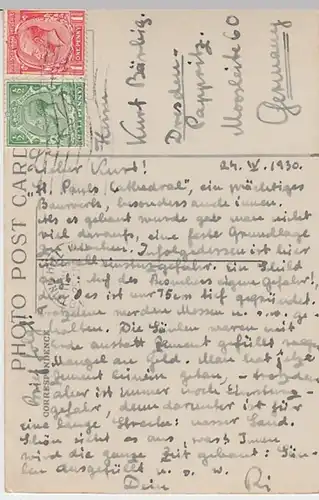 ONE PENNY
Herrn
Kurt Bärbig.
Dresden-
Pappritz.
Moosleite 60
Germany
PHOTO POST CARD
CORRESPONDENCE
Lieber Kurt! 24. IV. 1930.
"St. Pauls Cathedral", ein prächtiges
Bauwerk, besonders auch innen.
Als es gebaut wurde gab man nicht
viel darauf, eine feste Grundlage
zu machen. Infolgedessen ist hier
überall Einsturzgefahr. Ein Schild
sagt: "Auf des Besuchers eigene Gefahr!,
Das ist nur 75cm tief gegründet.
Trotzdem werden Messen u. s. w. ge-
halten. Die Säulen waren mit
Erde anstatt Zement gefüllt wegen
Mangel an Geld. Man hat jetzt
Zement hinein getan, - trotzdem
aber ist immer noch Einsturz-
gefahr, denn darunter ist für
eine lange Strecke: nasser Sand.
Schön sieht es aus, was? Innen
wird die ganze Zeit gebaut: Säu-
len ausgefüllt u. s. w.
Dein